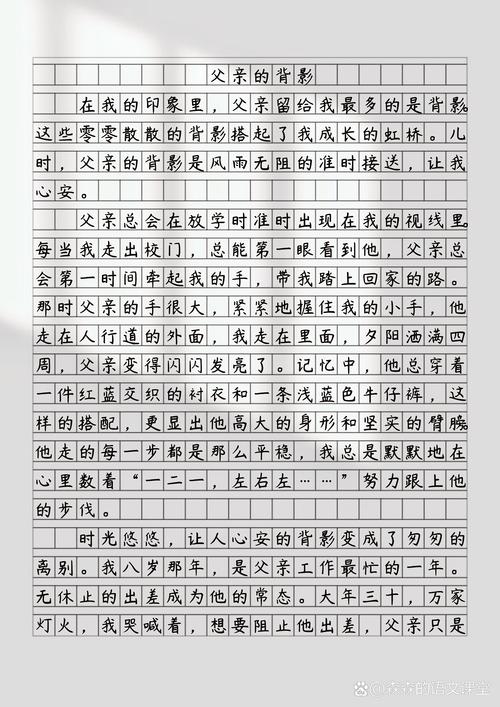 父亲的背影
在我的印象里，父亲留给我最多的是背影。
这些零零散散的背影搭起了我成长的虹桥。儿
时，父亲的背影是风雨无阻的准时接送，让我
心安。
父亲总会在放学时准时出现在我的视线里。
每当我走出校门，总能第一眼看到他，父亲总
会第一时间牵起我的手，带我踏上回家的路。
那时父亲的手很大，紧紧地握住我的小手，他
走在人行道的外面，我走在里面，夕阳洒满四
周，父亲变得闪闪发亮了。记忆中，他总穿着
一件红蓝交织的衬衣和一条浅蓝色牛仔裤，这
样的搭配，更显出他高大的身形和坚实的臂膀。
他走的每一步都是那么平稳，我总是默默地在
心里数着“一二一，左右左……”努力跟上他
的步伐。
时光悠悠，让人心安的背影变成了匆匆的
离别。我八岁那年，是父亲工作最忙的一年。
无休止的出差成为他的常态。大年三十，万家
灯火，我哭喊着，想要阻止他出差，父亲只是
森森的语文课堂